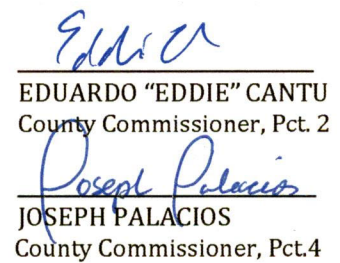 Eddie C
EDUARDO “EDDIE” CANTU
County Commissioner, Pct. 2
Joseph Palacios
JOSEPH PALACIOS
County Commissioner, Pct.4